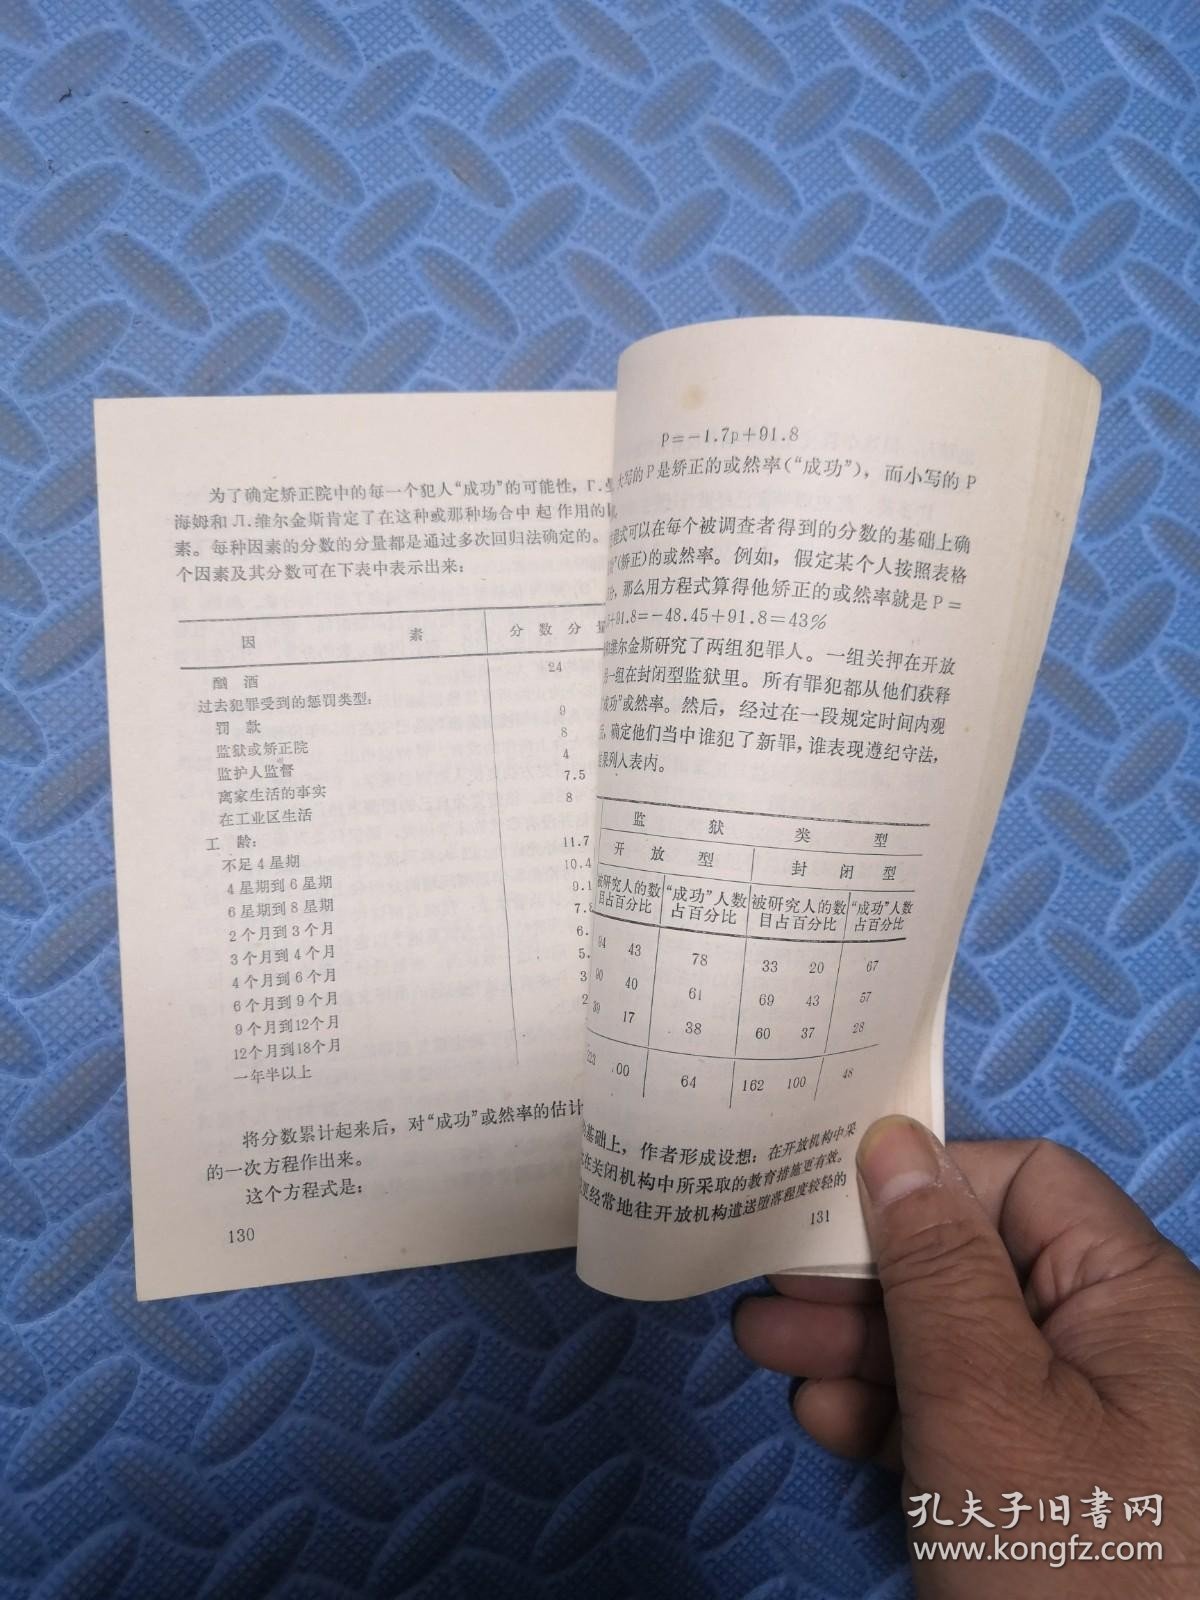 为了确定矫正院中的每一个犯人“成功”的可能性，Г.
海姆和 Л.维尔金斯肯定了在这种或那种场合中起作用的
素。每种因素的分数的分量都是通过多次回归法确定的。
个因素及其分数可在下表中表示出来：
因 素 分 数 分 量
酗 酒 24
过去犯罪受到的惩罚类型：
罚 款 9
监狱或矫正院 8
监护人监督 4
离家生活的事实 7.5
在工业区生活 8
工 龄：
不足 4 星期 11.7
4 星期到 6 星期 10.4
6 星期到 8 星期 9.1
2 个月到 3 个月 7.8
3 个月到 4 个月 6.
4 个月到 6 个月 5.
6 个月到 9 个月 3
9 个月到12个月 2
12个月到18个月
一年半以上
将分数累计起来后，对“成功”或然率的估计
的一次方程作出来。
这个方程式是：
130
P=－1.7p+91.8
大写的 P 是矫正的或然率（“成功”），而小写的 P
程式可以在每个被调查者得到的分数的基础上确
”（矫正）的或然率。例如，假定某个人按照表格
分，那么用方程式算得他矫正的或然率就是 P＝
+91.8=－48.45+91.8=43%
维尔金斯研究了两组犯罪人。一组关押在开放
一组在封闭型监狱里。所有罪犯都从他们获释
“成功”或然率。然后，经过在一段规定时间内观
，确定他们当中谁犯了新罪，谁表现遵纪守法，
果列入表内。
监 狱 类 型
开 放 型 封 闭 型
被研究人的数目占百分比 “成功”人数占百分比 被研究人的数目占百分比 “成功”人数占百分比
94 43 78 33 20 67
90 40 61 69 43 57
39 17 38 60 37 28
223 100 64 162 100 48
基础上，作者形成设想：在开放机构中采
在关闭机构中所采取的教育措施更有效。
更经常地往开放机构遣送堕落程度较轻的
131
孔夫子旧书网
www.kongfz.com